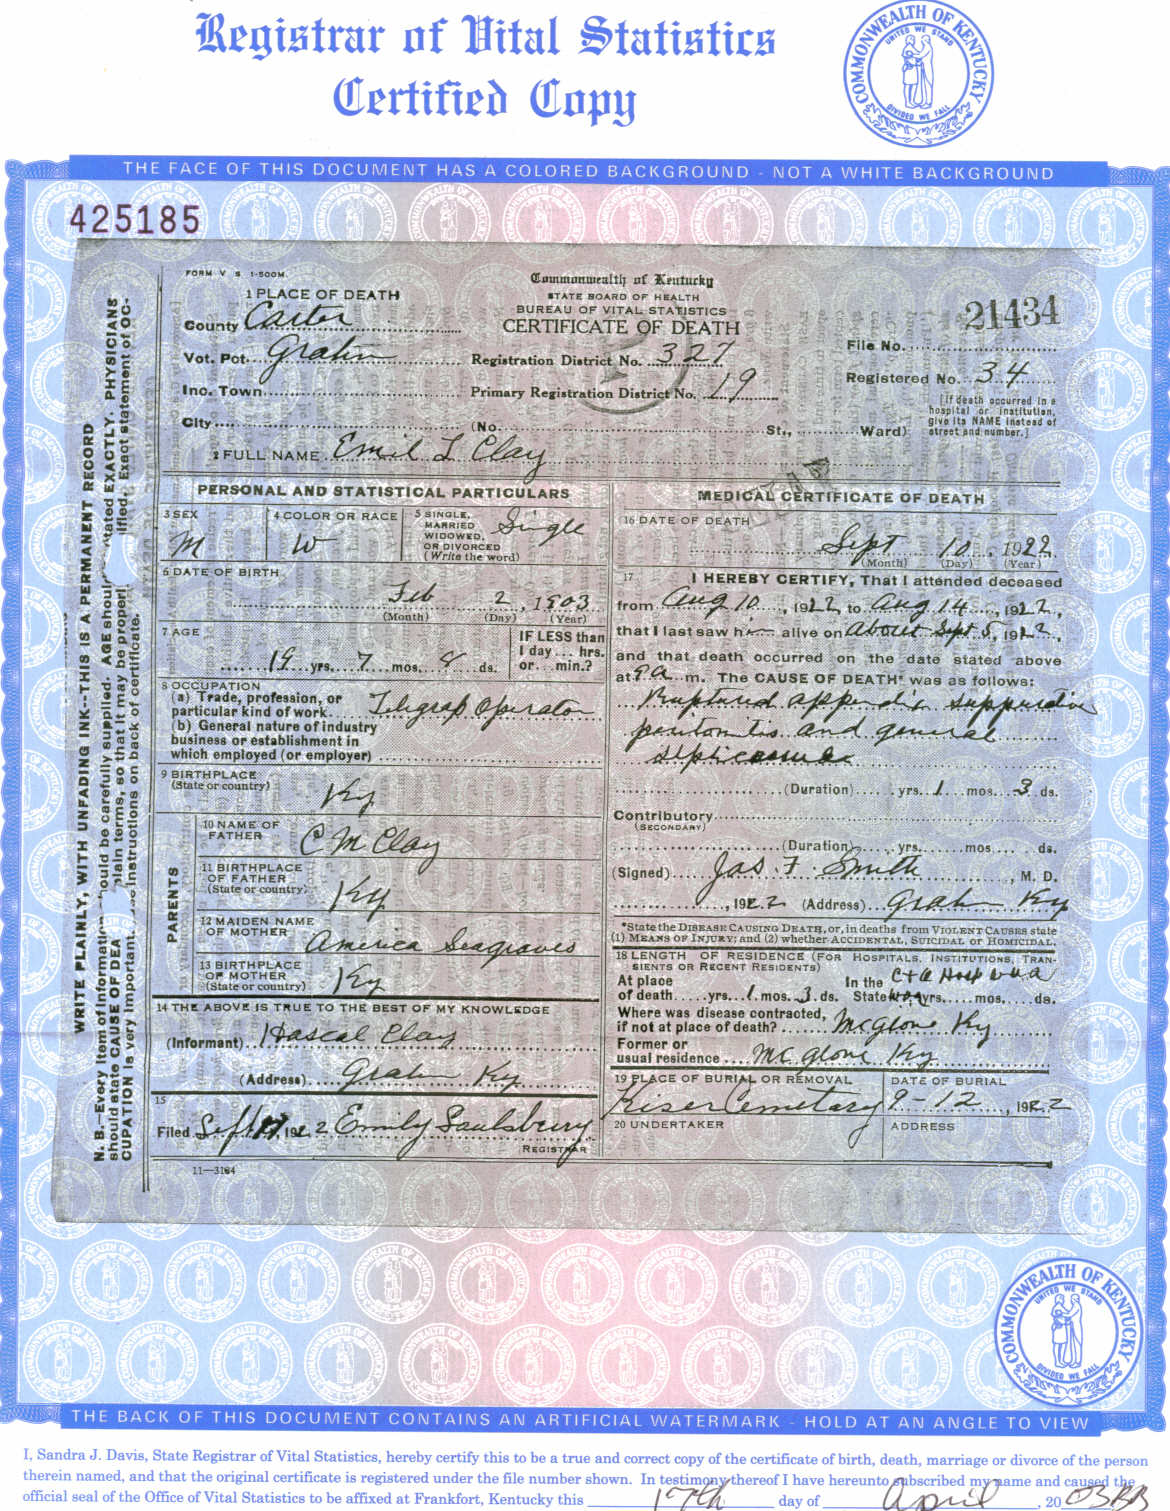 Registrar of Vital Statistics
Certified Copy
COMMONWEALTH OF KENTUCKY
UNITED WE STAND
DIVIDED WE FALL
THE FACE OF THIS DOCUMENT HAS A COLORED BACKGROUND - NOT A WHITE BACKGROUND
425185
FORM V S 1-500M
Commonwealth of Kentucky
STATE BOARD OF HEALTH
BUREAU OF VITAL STATISTICS
CERTIFICATE OF DEATH
21434
File No.
Registered No. 34
[If death occurred in a
hospital or institution,
give its NAME instead of
street and number.]
1 PLACE OF DEATH
County Carter
Vot. Pct. Grahn
Registration District No. 327
Inc. Town
Primary Registration District No. 19
City (No. St., Ward)
2 FULL NAME Emil L Clay
PERSONAL AND STATISTICAL PARTICULARS
3 SEX M
4 COLOR OR RACE W
5 SINGLE, MARRIED WIDOWED, OR DIVORCED (Write the word) Single
6 DATE OF BIRTH
Feb 2, 1903
(Month) (Day) (Year)
7 AGE
19 yrs. 7 mos. 8 ds.
IF LESS than
1 day... hrs.
or... min.?
8 OCCUPATION
(a) Trade, profession, or
particular kind of work. Telegrap Operator
(b) General nature of industry
business or establishment in
which employed (or employer)
9 BIRTHPLACE
(State or country) Ky
PARENTS
10 NAME OF
FATHER C M Clay
11 BIRTHPLACE
OF FATHER
(State or country) Ky
12 MAIDEN NAME
OF MOTHER America Seagraves
13 BIRTHPLACE
OF MOTHER
(State or country) Ky
14 THE ABOVE IS TRUE TO THE BEST OF MY KNOWLEDGE
(Informant) Hascal Clay
(Address) Grahn Ky
15
Filed Sept 192 2 Emily Saulsberry
REGISTRAR
11—3184
MEDICAL CERTIFICATE OF DEATH
16 DATE OF DEATH
Sept 10, 1922
(Month) (Day) (Year)
17 I HEREBY CERTIFY, That I attended deceased
from Aug 10, 1922 to Aug 14, 1922,
that I last saw him alive on About Sept 5, 1922,
and that death occurred on the date stated above
at 9 a. m. The CAUSE OF DEATH* was as follows:
Ruptured appendix suppurative
peritonitis and general
septicaemia
(Duration) yrs. 1 mos. 3 ds.
Contributory
(SECONDARY)
(Duration) yrs. mos. ds.
(Signed) Jas. F. Smith, M. D.
, 1922 (Address) Grahn Ky
*State the DISEASE CAUSING DEATH, or, in deaths from VIOLENT CAUSES state
(1) MEANS OF INJURY; and (2) whether ACCIDENTAL, SUICIDAL or HOMICIDAL.
18 LENGTH OF RESIDENCE (FOR HOSPITALS, INSTITUTIONS, TRAN-
SIENTS OR RECENT RESIDENTS)
At place In the C+O Hosp
of death yrs. 1 mos. 3 ds. State yrs. mos. ds.
Where was disease contracted,
if not at place of death? McGlone Ky
Former or
usual residence McGlone Ky
19 PLACE OF BURIAL OR REMOVAL
Kiser Cemetary
DATE OF BURIAL
9-12, 1922
20 UNDERTAKER
ADDRESS
WRITE PLAINLY, WITH UNFADING INK--THIS IS A PERMANENT RECORD
N. B.—Every item of information should be carefully supplied. AGE should stated EXACTLY. PHYSICIANS
should state CAUSE OF DEA plain terms, so that it may be properl ified. Exact statement of OC-
CUPATION is very important. instructions on back of certificate.
COMMONWEALTH OF KENTUCKY
UNITED WE STAND
DIVIDED WE FALL
THE BACK OF THIS DOCUMENT CONTAINS AN ARTIFICIAL WATERMARK - HOLD AT AN ANGLE TO VIEW
I, Sandra J. Davis, State Registrar of Vital Statistics, hereby certify this to be a true and correct copy of the certificate of birth, death, marriage or divorce of the person
therein named, and that the original certificate is registered under the file number shown. In testimony thereof I have hereunto subscribed my name and caused the
official seal of the Office of Vital Statistics to be affixed at Frankfort, Kentucky this 17th day of April, 20